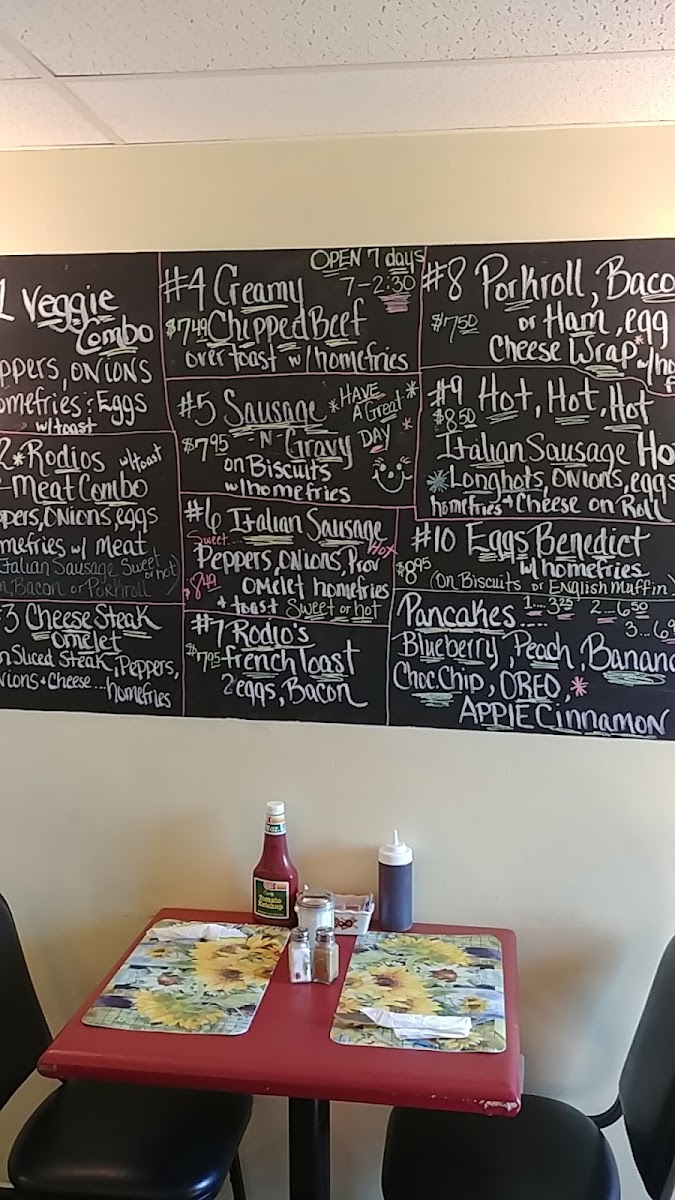 Veggie
Combo
ppers, onions
omefries: Eggs
w/toast
2 *Rodios w/toast
Meat Combo
pers, onions, eggs
mefries w/ Meat
Italian Sausage Sweet
or hot)
Bacon or Porkroll
3 Cheese Steak
omelet
n Sliced Steak, Peppers,
nions + Cheese... homefries
OPEN 7 days
7-2:30
#4 Creamy
$7.49 Chipped Beef
over toast w/ homefries
#5 Sausage
$7.95 -N- Gravy
on Biscuits
w/homefries
*HAVE
A Great *
DAY *
#6 Italian Sausage
Sweet... Hot
Peppers, onions, Prov
$8.49 omelet homefries
+ toast Sweet or hot
#7 Rodio's
$7.95 french Toast
2 eggs, Bacon
#8 Porkroll, Baco
$7.50 or Ham, egg
Cheese Wrap* w/ho
#9 Hot, Hot, Hot
$8.50
Italian Sausage Ho
Longhots, onions, eggs
homefries + Cheese on Roll
#10 Eggs Benedict
$8.95 w/homefries
(on Biscuits or English Muffin)
Pancakes 1... 3.25 2... 6.50
3... 6.9
Blueberry, Peach, Banana
Choc. Chip, OREO, *
APPlE Cinnamon
Tomato
Ketchup